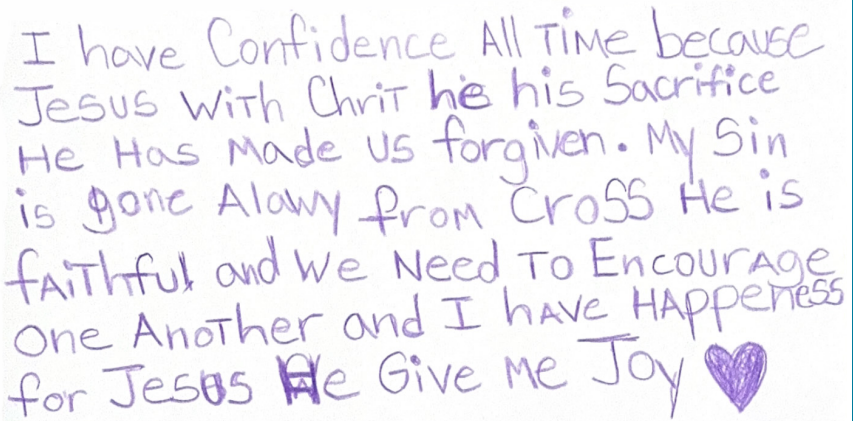 I have Confidence All TiMe because
Jesus With ChriT he his Sacrifice
He Has Made us forgiven. My Sin
is gone Alawy from Cross He is
fAiThful and We Need To EncourAge
One AnoTher and I hAve HAppeness
for Jesus He Give Me Joy